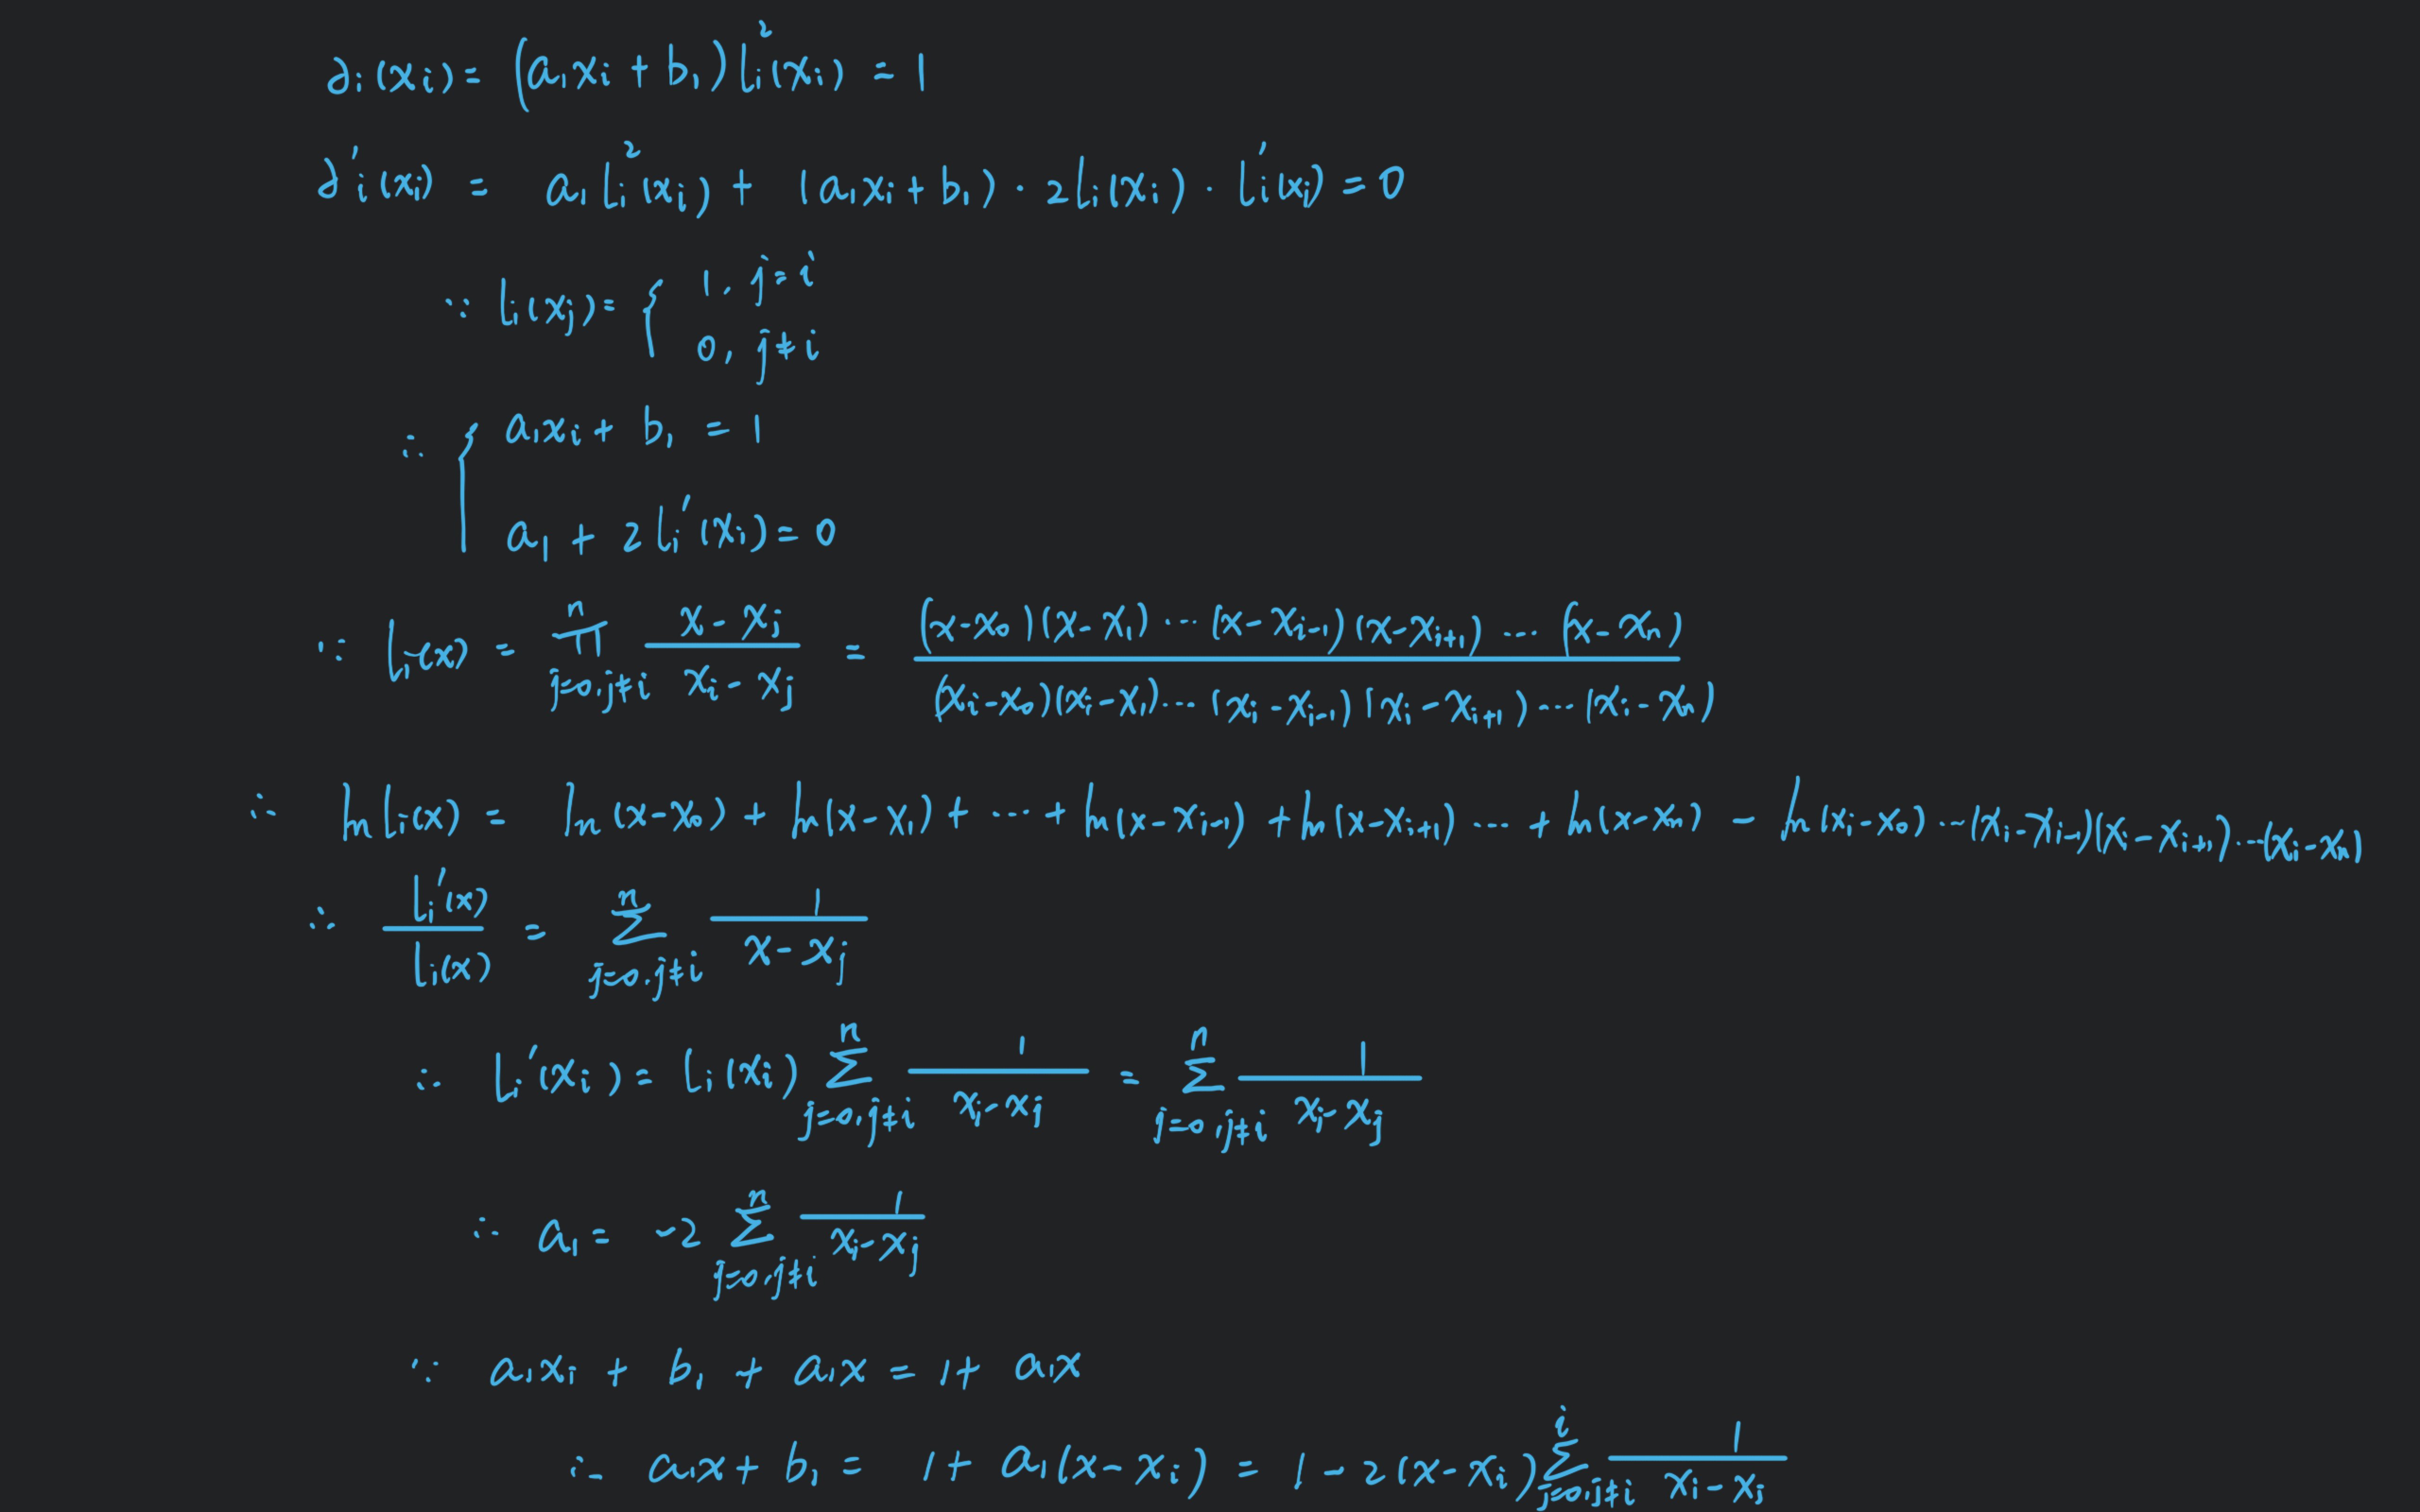 ∂ᵢ(xᵢ) = (a₁xᵢ + b₁) lᵢ²(xᵢ) = 1
∂ᵢ′(xᵢ) = a₁lᵢ²(xᵢ) + (a₁xᵢ + b₁) · 2lᵢ(xᵢ) · lᵢ′(xᵢ) = 0
∵ lᵢ(xⱼ) = { 1, j = i
0, j ≠ i
∴ { a₁xᵢ + b₁ = 1
a₁ + 2lᵢ′(xᵢ) = 0
∵ lᵢ(x) = ∏_{j=0, j≠i}^{n} \frac{x - xⱼ}{xᵢ - xⱼ} = \frac{(x-x₀)(x-x₁)···(x-x_{i-1})(x-x_{i+1})···(x-xₙ)}{(xᵢ-x₀)(xᵢ-x₁)···(xᵢ-x_{i-1})(xᵢ-x_{i+1})···(xᵢ-xₙ)}
∴ ln lᵢ(x) = ln(x-x₀) + ln(x-x₁) + ··· + ln(x-x_{i-1}) + ln(x-x_{i+1}) ··· + ln(x-xₙ) - ln(xᵢ-x₀)···(xᵢ-x_{i-1})(xᵢ-x_{i+1})···(xᵢ-xₙ)
∴ \frac{lᵢ′(x)}{lᵢ(x)} = ∑_{j=0, j≠i}^{n} \frac{1}{x - xⱼ}
∴ lᵢ′(xᵢ) = lᵢ(xᵢ) ∑_{j=0, j≠i}^{n} \frac{1}{xᵢ - xⱼ} = ∑_{j=0, j≠i}^{n} \frac{1}{xᵢ - xⱼ}
∴ a₁ = -2 ∑_{j=0, j≠i}^{n} \frac{1}{xᵢ - xⱼ}
∵ a₁xᵢ + b₁ + a₁x = 1 + a₁x
∴ a₁x + b₁ = 1 + a₁(x - xᵢ) = 1 - 2(x - xᵢ) ∑_{j=0, j≠i}^{i} \frac{1}{xᵢ - xⱼ}